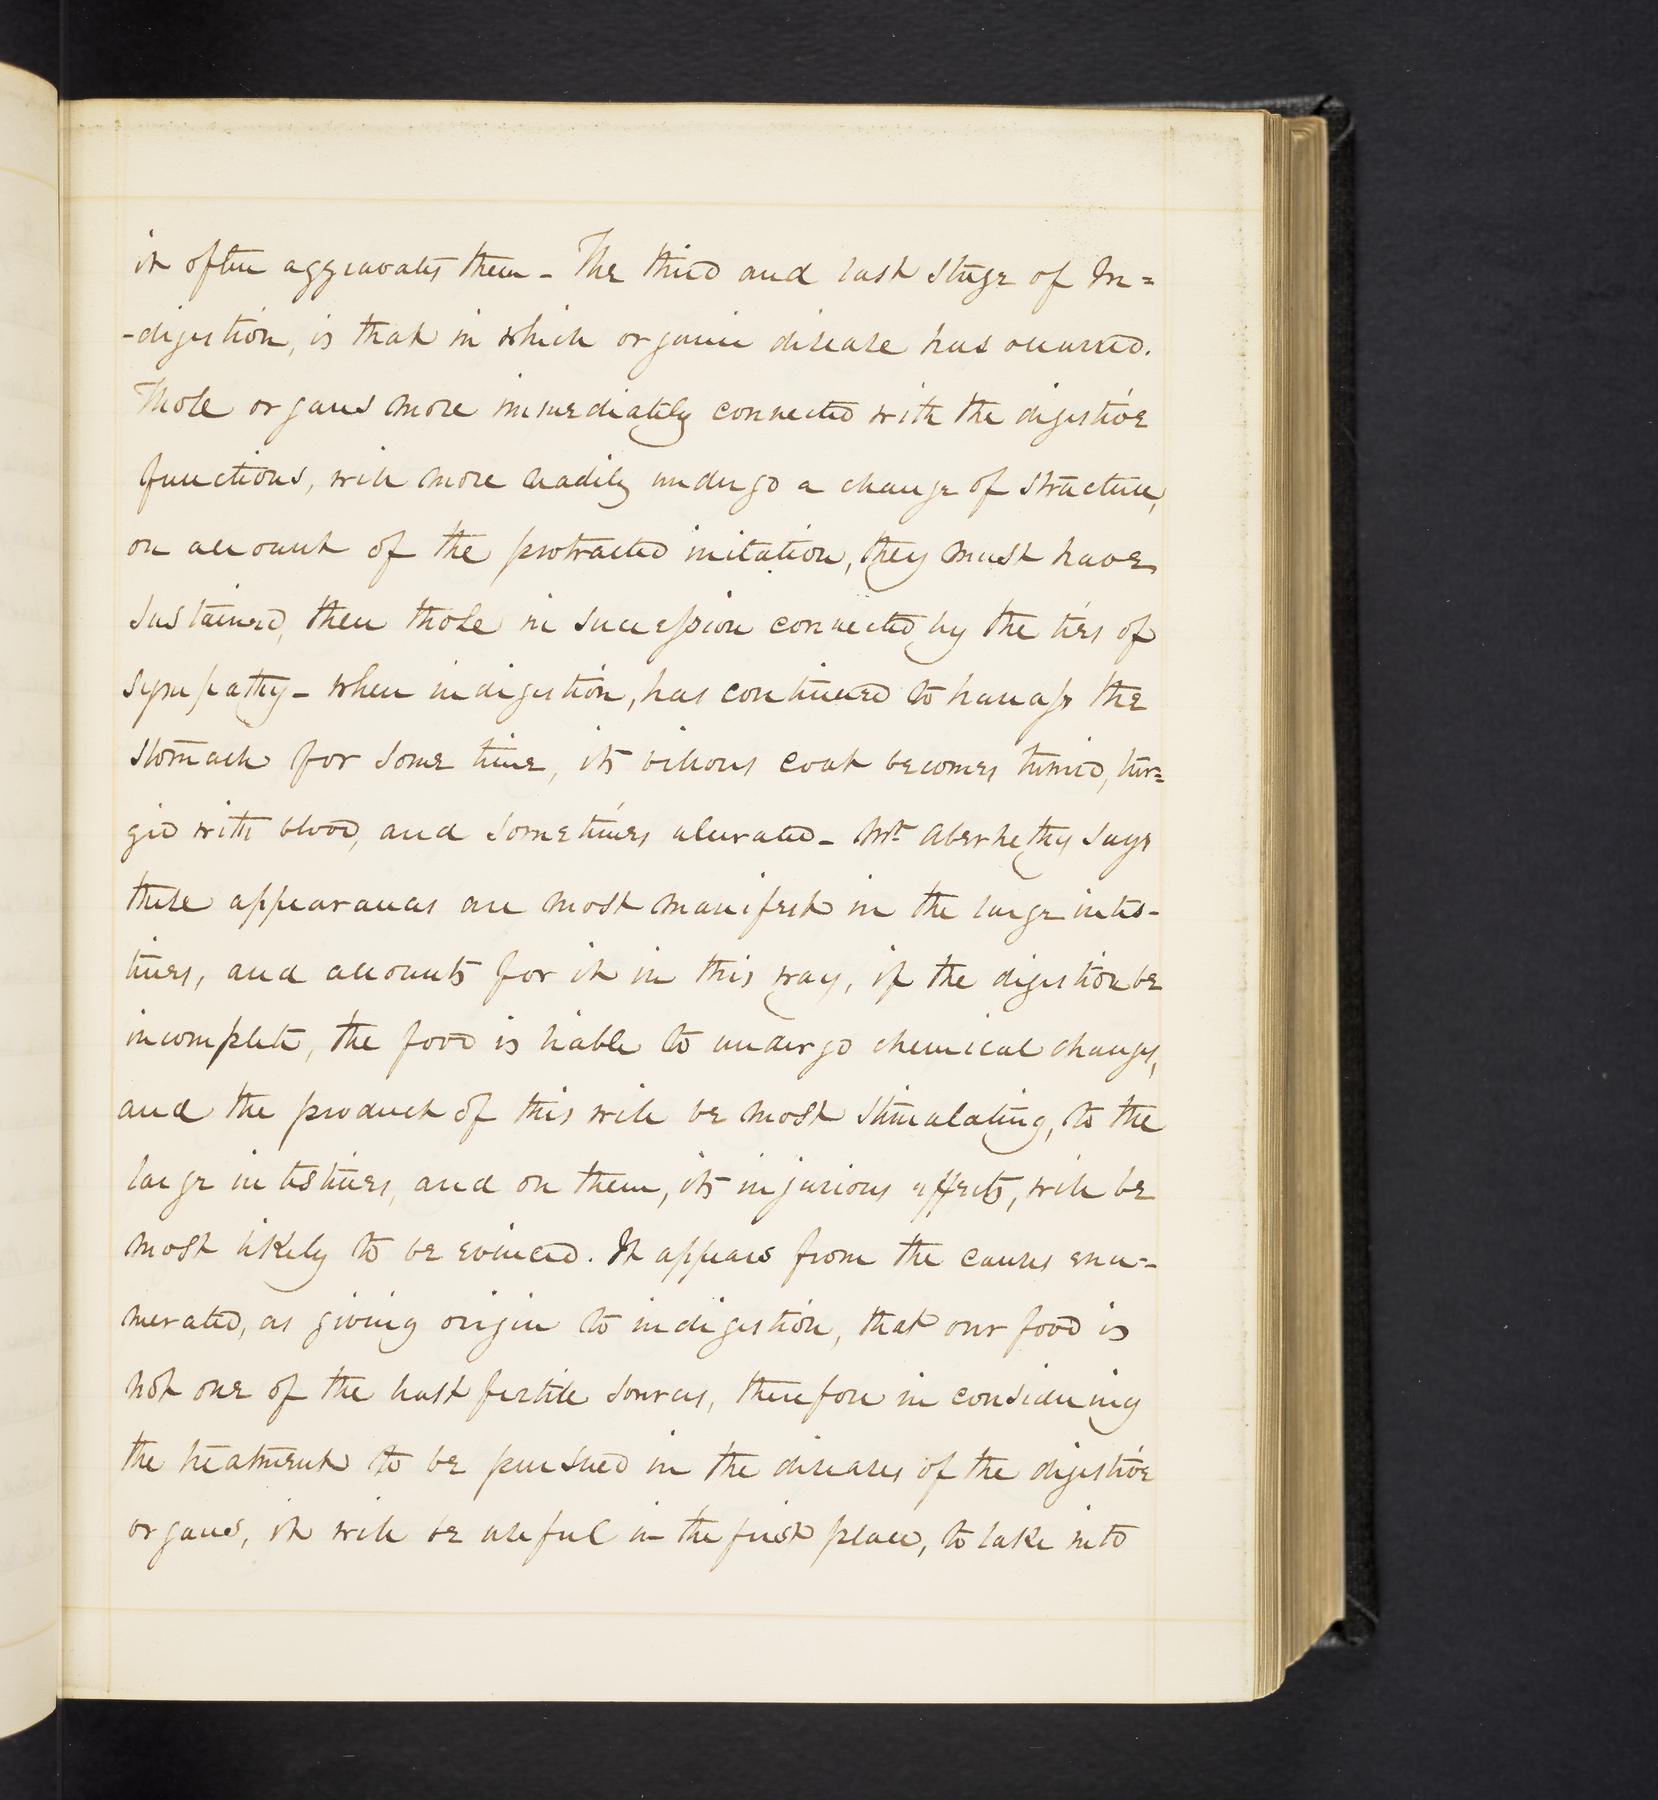 it often aggravates them - The third and last stage of In=
-digestion, is that in which organic disease has occurred.
Those organs more immediately connected with the digestive
functions, will more readily undergo a change of structure,
on account of the protracted irritation, they must have
sustained, then those in succession connected by the ties of
sympathy - when indigestion, has continued to harrass the
stomach for some time, its villous coat becomes tumid, tur=
gid with blood, and sometimes ulcerated - Mr. Abernethy says
these appearances are most manifest in the large intes-
tines, and accounts for it in this way, if the digestion be
incomplete, the food is liable to undergo chemical changes,
and the product of this will be most stimulating, to the
large intestines, and on them, its injurious effects, will be
most likely to be evinced. It appears from the causes enu-
merated, as giving origin to indigestion, that our food is
not one of the least fertile sources, therefore in considering
the treatment to be pursued in the diseases of the digestive
organs, it will be useful in the first place, to take into